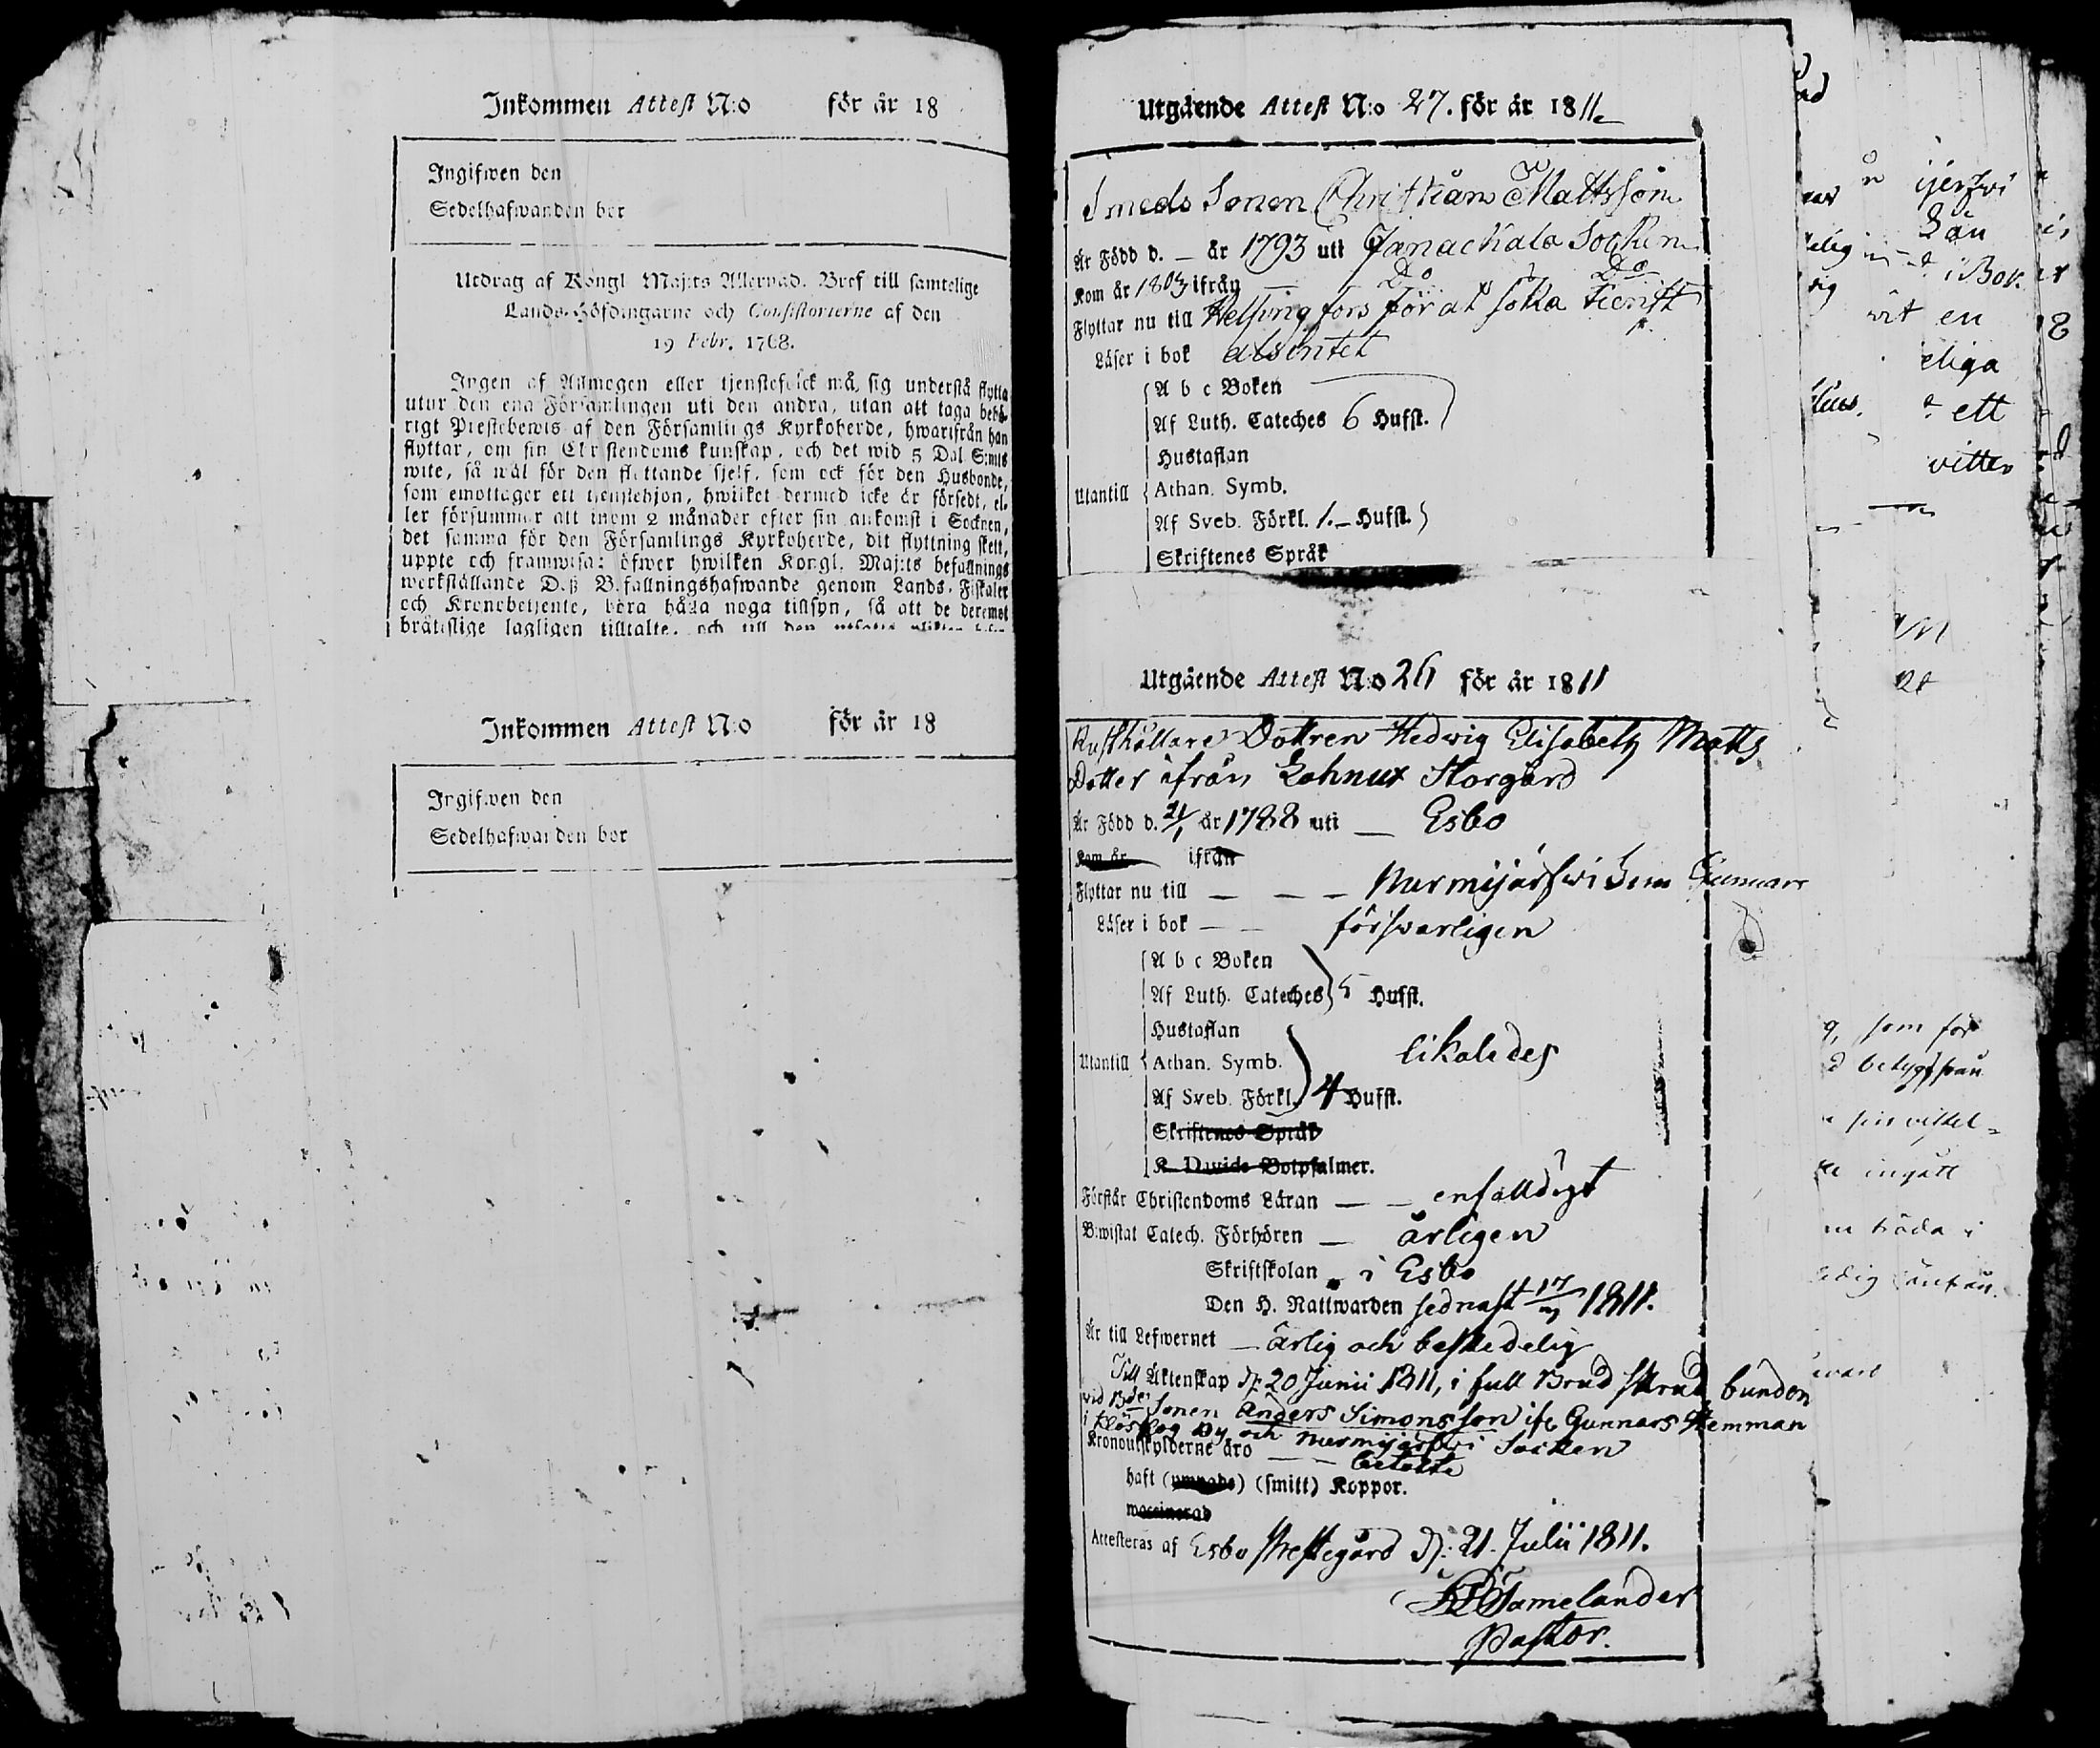 Inkommen Attest N:o för år 18
Ingifwen den
Sedelhafwanden bor
Utdrag af Kongl Maj:ts Allernåd. Bref till samtelige
Lands-Höfdingarne och Consistorierne af den
19 Febr. 1768.
Ingen af Allmogen eller tjenstefolck må sig understå flytta
utur den ena Församlingen uti den andra, utan att taga behö-
rigt Prestebewis af den Församlings Kyrkoherde, hwarifrån han
flyttar, om sin Christendoms kunskap, och det wid 5 Dal S:mts
wite, så wäl för den flyttande sjelf, som ock för den Husbonde,
som emottager ett tjenstehjon, hwilket dermed icke är försedt, el-
ler försummar att inom 2 månader efter sin ankomst i Socknen,
det samma för den Församlings Kyrkoherde, dit flyttning skett,
uppte och framwisa: öfwer hwilken Kongl. Maj:ts befallnings
werkställande Deß B.fallningshafwande genom Lands-Fiskaler
och Kronobetjente, böra hålla noga tillsyn, så att de deremot
bråtslige lagligen tilltalte, och till den
Inkommen Attest N:o för år 18
Ingifwen den
Sedelhafwanden bor
Utgående Attest N:o 27. för år 1811
Smeds Sonen Christian Mattsson
Är Född d. – år 1793 uti Janackala Sockn
Kom år 1803 ifrån — Do Do
Flyttar nu till Helsingfors för at söka tienst
Läser i bok alsintet
A b c Boken
Af Luth. Cateches 6 Hufst.
Hustaflan
Utantill Athan. Symb.
Af Sveb. Förkl. 1. – Hufst.
Skriftenes Språk
Utgående Attest N:o 26 för år 1811
Rusthållare Dottren Hedwig Elisabeth Matts
Dotter ifrån Lahnus Storgård
Är Född d. 21/1 år 1788 uti — Esbo
Kom år ifrån
Flyttar nu till — — — Nurmijärfwi Sn Gunnars
Läser i bok — — försvarligen
A b c Boken
Af Luth. Cateches 5 Hufst.
Hustaflan
Utantill Athan. Symb. likaledes
Af Sveb. Förkl. 4 Hufst.
Skriftenes Språk
K. Davids Botpsalmer.
Förstår Christendoms Läran — — enfalldigt
B:wistat Catech. Förhören — årligen
Skriftskolan – i Esbo
Den H. Nattwarden sednast 17/7 1811.
Är till Lefwernet — ärlig och beskedelig
Till Äktenskap d: 20 Junii 1811, i full Brud skrud bunden
vid Bde Sonen Anders Simonsson ifr. Gunnars Hemman
i Klöfskog By och Nurmijärfwi Socken
Kronoutskylderne äro — — betalte
haft (ymnade) (smitt) Koppor.
waccinerad
Attesteras af Esbo Prestegård d: 21. Julii 1811.
Gamelander
Pastor.
ijerfwi
Län
i Bok.
en
eliga
ett
vitter
som för
ingått
träda i